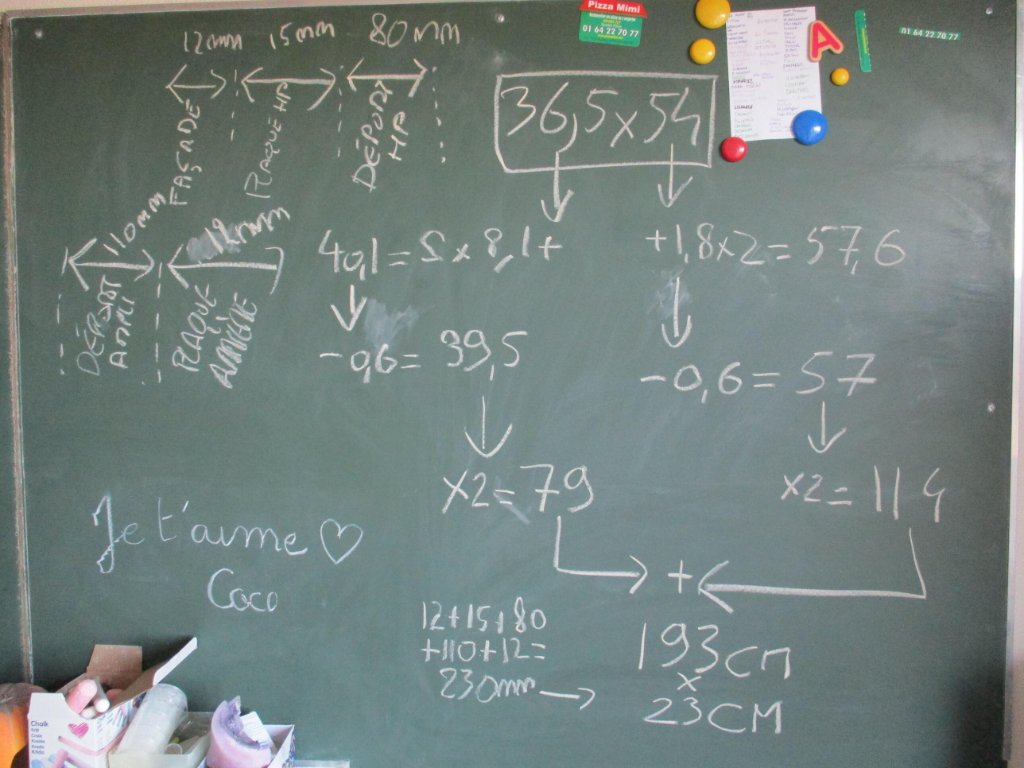 12mm 15mm 80mm
FAÇADE
PLAQUE HP
DÉPORT
HP
36,5x54
40,1=2x8,1+
+1,8x2=57,6
110mm
12mm
DÉPORT
AMPLI
PLAQUE
-0,6= 39,5
-0,6=57
x2=79
x2=114
+
193CM
x
23CM
12+15+80
+110+12=
230mm
Je t'aime
Coco
Pizza Mimi
01 64 22 70 77
01 64 22 70 77
A
Chalk